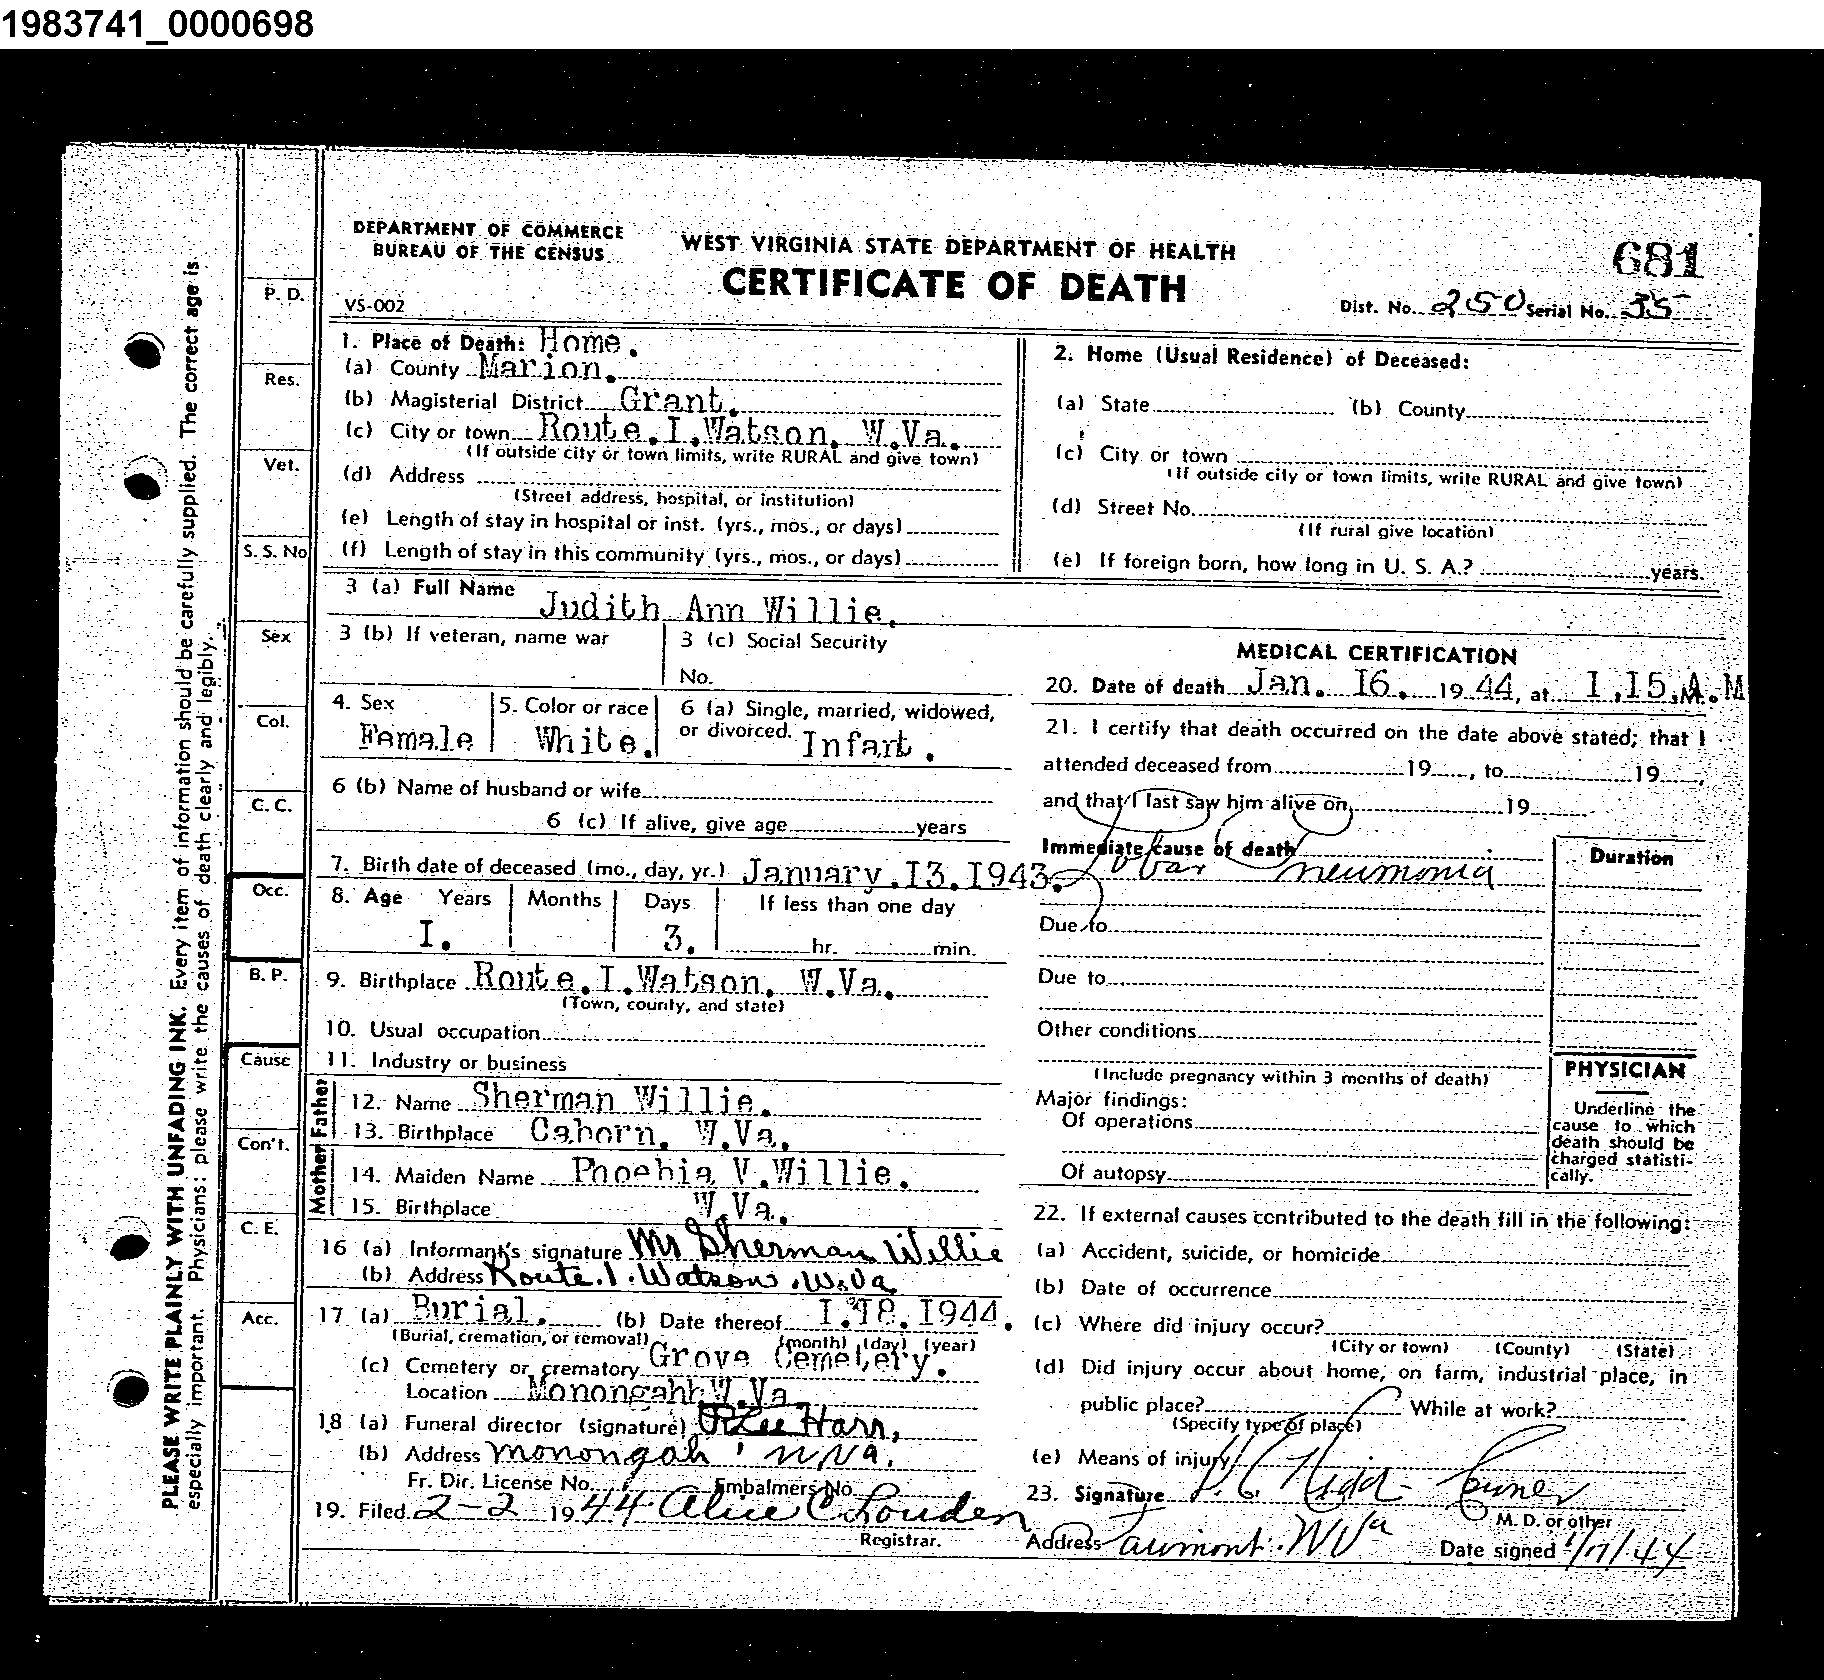 1983741_0000698
DEPARTMENT OF COMMERCE
BUREAU OF THE CENSUS
WEST VIRGINIA STATE DEPARTMENT OF HEALTH
CERTIFICATE OF DEATH
681
VS-002
Dist. No. 250 Serial No. 35
1. Place of Death: Home.
(a) County Marion.
(b) Magisterial District Grant.
(c) City or town Route.I.Watson. W.Va.
(If outside city or town limits, write RURAL and give town)
(d) Address
(Street address, hospital, or institution)
(e) Length of stay in hospital or inst. (yrs., mos., or days)
(f) Length of stay in this community (yrs., mos., or days)
2. Home (Usual Residence) of Deceased:
(a) State (b) County
(c) City or town
(If outside city or town limits, write RURAL and give town)
(d) Street No.
(If rural give location)
(e) If foreign born, how long in U. S. A.? years.
3 (a) Full Name Judith Ann Willie.
3 (b) If veteran, name war
3 (c) Social Security
No.
4. Sex Female
5. Color or race White.
6 (a) Single, married, widowed,
or divorced. Infant.
6 (b) Name of husband or wife
6 (c) If alive, give age years
7. Birth date of deceased (mo., day, yr.) January.I3.I943.
8. Age Years Months Days If less than one day
I. 3. hr. min.
9. Birthplace Route.I.Watson. W.Va.
(Town, county, and state)
10. Usual occupation
11. Industry or business
Father
12. Name Sherman Willie.
13. Birthplace W.Va.
Mother
14. Maiden Name Phoebia V.Willie.
15. Birthplace W.Va.
16 (a) Informant's signature Mr Sherman Willie
(b) Address Route.1.Watson.W.Va
17 (a) Burial. (b) Date thereof I.18.I944.
(Burial, cremation, or removal) (month) (day) (year)
(c) Cemetery or crematory Grove Cemetery.
Location Monongahh W.Va
18 (a) Funeral director (signature) Harr,
(b) Address Monongah W.Va.
Fr. Dir. License No. Embalmers No.
19. Filed 2-2 1944 Alice C Louden
Registrar.
MEDICAL CERTIFICATION
20. Date of death Jan. I6. 1944, at I.I5.A.M
21. I certify that death occurred on the date above stated; that I
attended deceased from 19 , to 19 ,
and that I last saw him alive on 19
Immediate cause of death Lobar Pneumonia
Duration
Due to
Due to
Other conditions
(Include pregnancy within 3 months of death)
Major findings:
Of operations
Of autopsy
PHYSICIAN
Underline the
cause to which
death should be
charged statisti-
cally.
22. If external causes contributed to the death fill in the following:
(a) Accident, suicide, or homicide
(b) Date of occurrence
(c) Where did injury occur?
(City or town) (County) (State)
(d) Did injury occur about home, on farm, industrial place, in
public place? While at work?
(Specify type of place)
(e) Means of injury
23. Signature Coroner
M. D. or other
Address Fairmont. W Va Date signed 1/17/44
P. D.
Res.
Vet.
S. S. No
Sex
Col.
C. C.
Occ.
B. P.
Cause
Con't.
C. E.
Acc.
PLEASE WRITE PLAINLY WITH UNFADING INK. Every item of information should be carefully supplied. The correct age is
especially important. Physicians: please write the causes of death clearly and legibly.